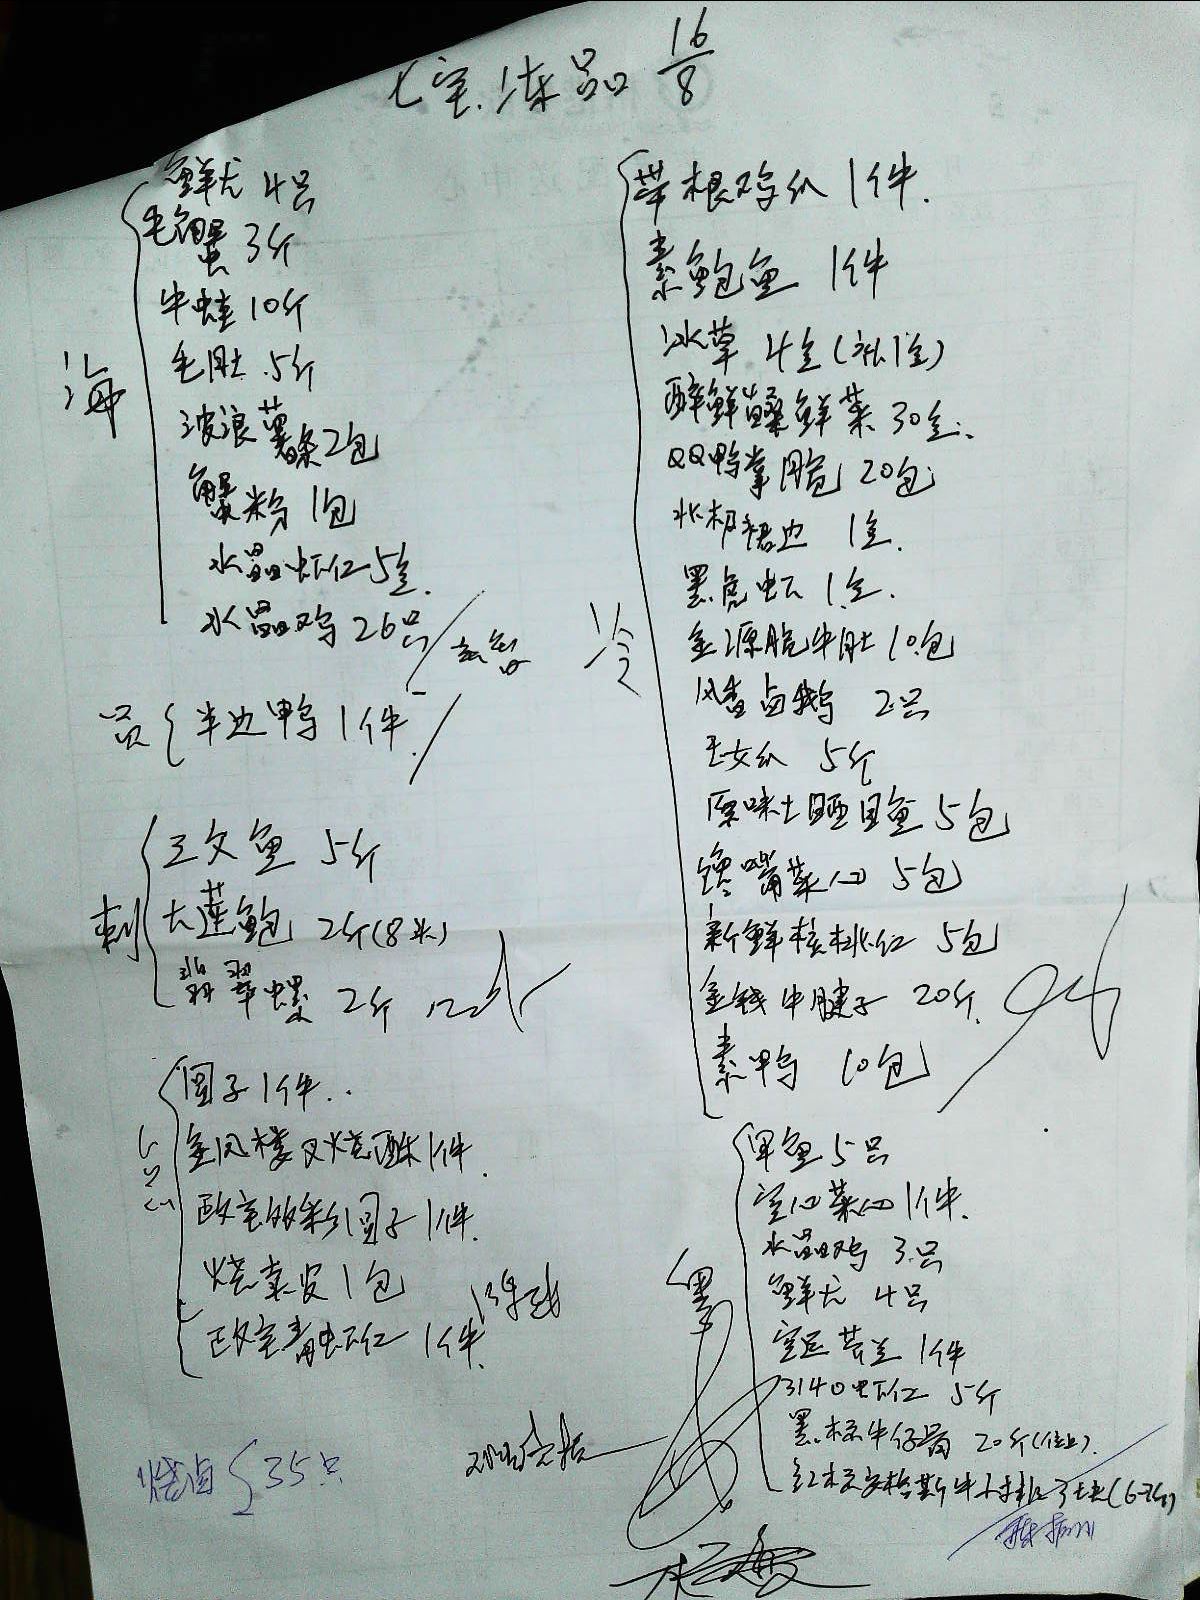 七宝冻品 16/8
海
鲜尤 4只
毛蟹 3斤
牛蛙 10斤
毛肚 5斤
波浪薯条2包
蟹粉 1包
水晶虾仁5盒
水晶鸡 26只
半边鸭 1件
刺
三文鱼 5斤
大莲鲍 2斤(8头)
翡翠螺 2斤
圆子1件
金凤楼叉烧酥1件
政宅 圆子1件
1包
政宅青虾仁 1件
烧卤 35只
冷
带根鸡纵 1件
素鲍鱼 1件
冰草 4盒(补1盒)
醉鲜 鲜菜 30盒
QQ鸭掌 20包
北极裙边 1盒
黑虎虾 1盒
金源脆牛肚10包
风香卤鹅 2只
玉女纵 5斤
原味土晒目鱼 5包
馋嘴菜心 5包
新鲜核桃仁 5包
金钱牛腱子 20斤
素鸭 10包
甲鱼5只
空心菜心1件
水晶鸡 3只
鲜尤 4只
空运芥兰 1件
3140虾仁 5斤
黑标牛仔骨 20斤(位上)
红标安格斯牛 3块